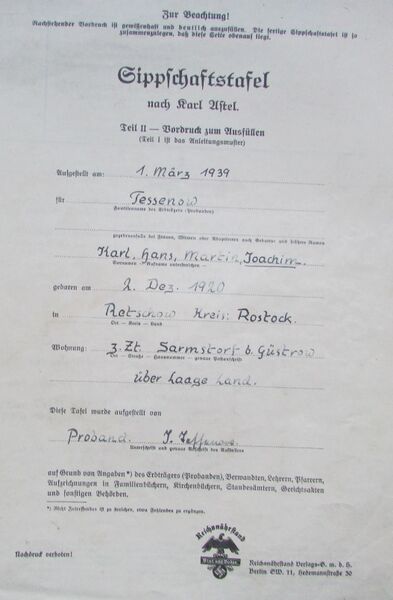 Zur Beachtung!
Nachstehender Vordruck ist gewissenhaft und deutlich auszufüllen. Die fertige Sippschaftstafel ist so
zusammenzulegen, daß diese Seite obenauf liegt.
Sippschaftstafel
nach Karl Astel.
Teil II — Vordruck zum Ausfüllen
(Teil I ist das Anleitungsmuster)
Aufgestellt am: 1. März 1939
für Tessenow
Familienname des Erbträgers (Probanden)
gegebenenfalls bei Frauen, Witwen oder Adoptierten auch Geburts- und frühere Namen
Karl, Hans, Martin, Joachim.
Vornamen — Rufname unterstreichen —
geboren am 2. Dez. 1920
in Retschow Kreis: Rostock.
Ort — Kreis — Land
Wohnung: z. Zt. Sarmstorf b. Güstrow
Ort — Straße — Hausnummer — genaue Postanschrift
über Laage Land.
Diese Tafel wurde aufgestellt von
Proband. J. Tessenow.
Unterschrift und genaue Anschrift des Ausfüllers
auf Grund von Angaben*) des Erbträgers (Probanden), Verwandten, Lehrern, Pfarrern,
Aufzeichnungen in Familienbüchern, Kirchenbüchern, Standesämtern, Gerichtsakten
und sonstigen Behörden.
*) Nicht Zutreffendes ist zu streichen, etwa Fehlendes zu ergänzen.
Reichsnährstand
Blut und Boden
Nachdruck verboten!
Reichsnährstand Verlags-G. m. b. H.
Berlin SW. 11, Hedemannstraße 30